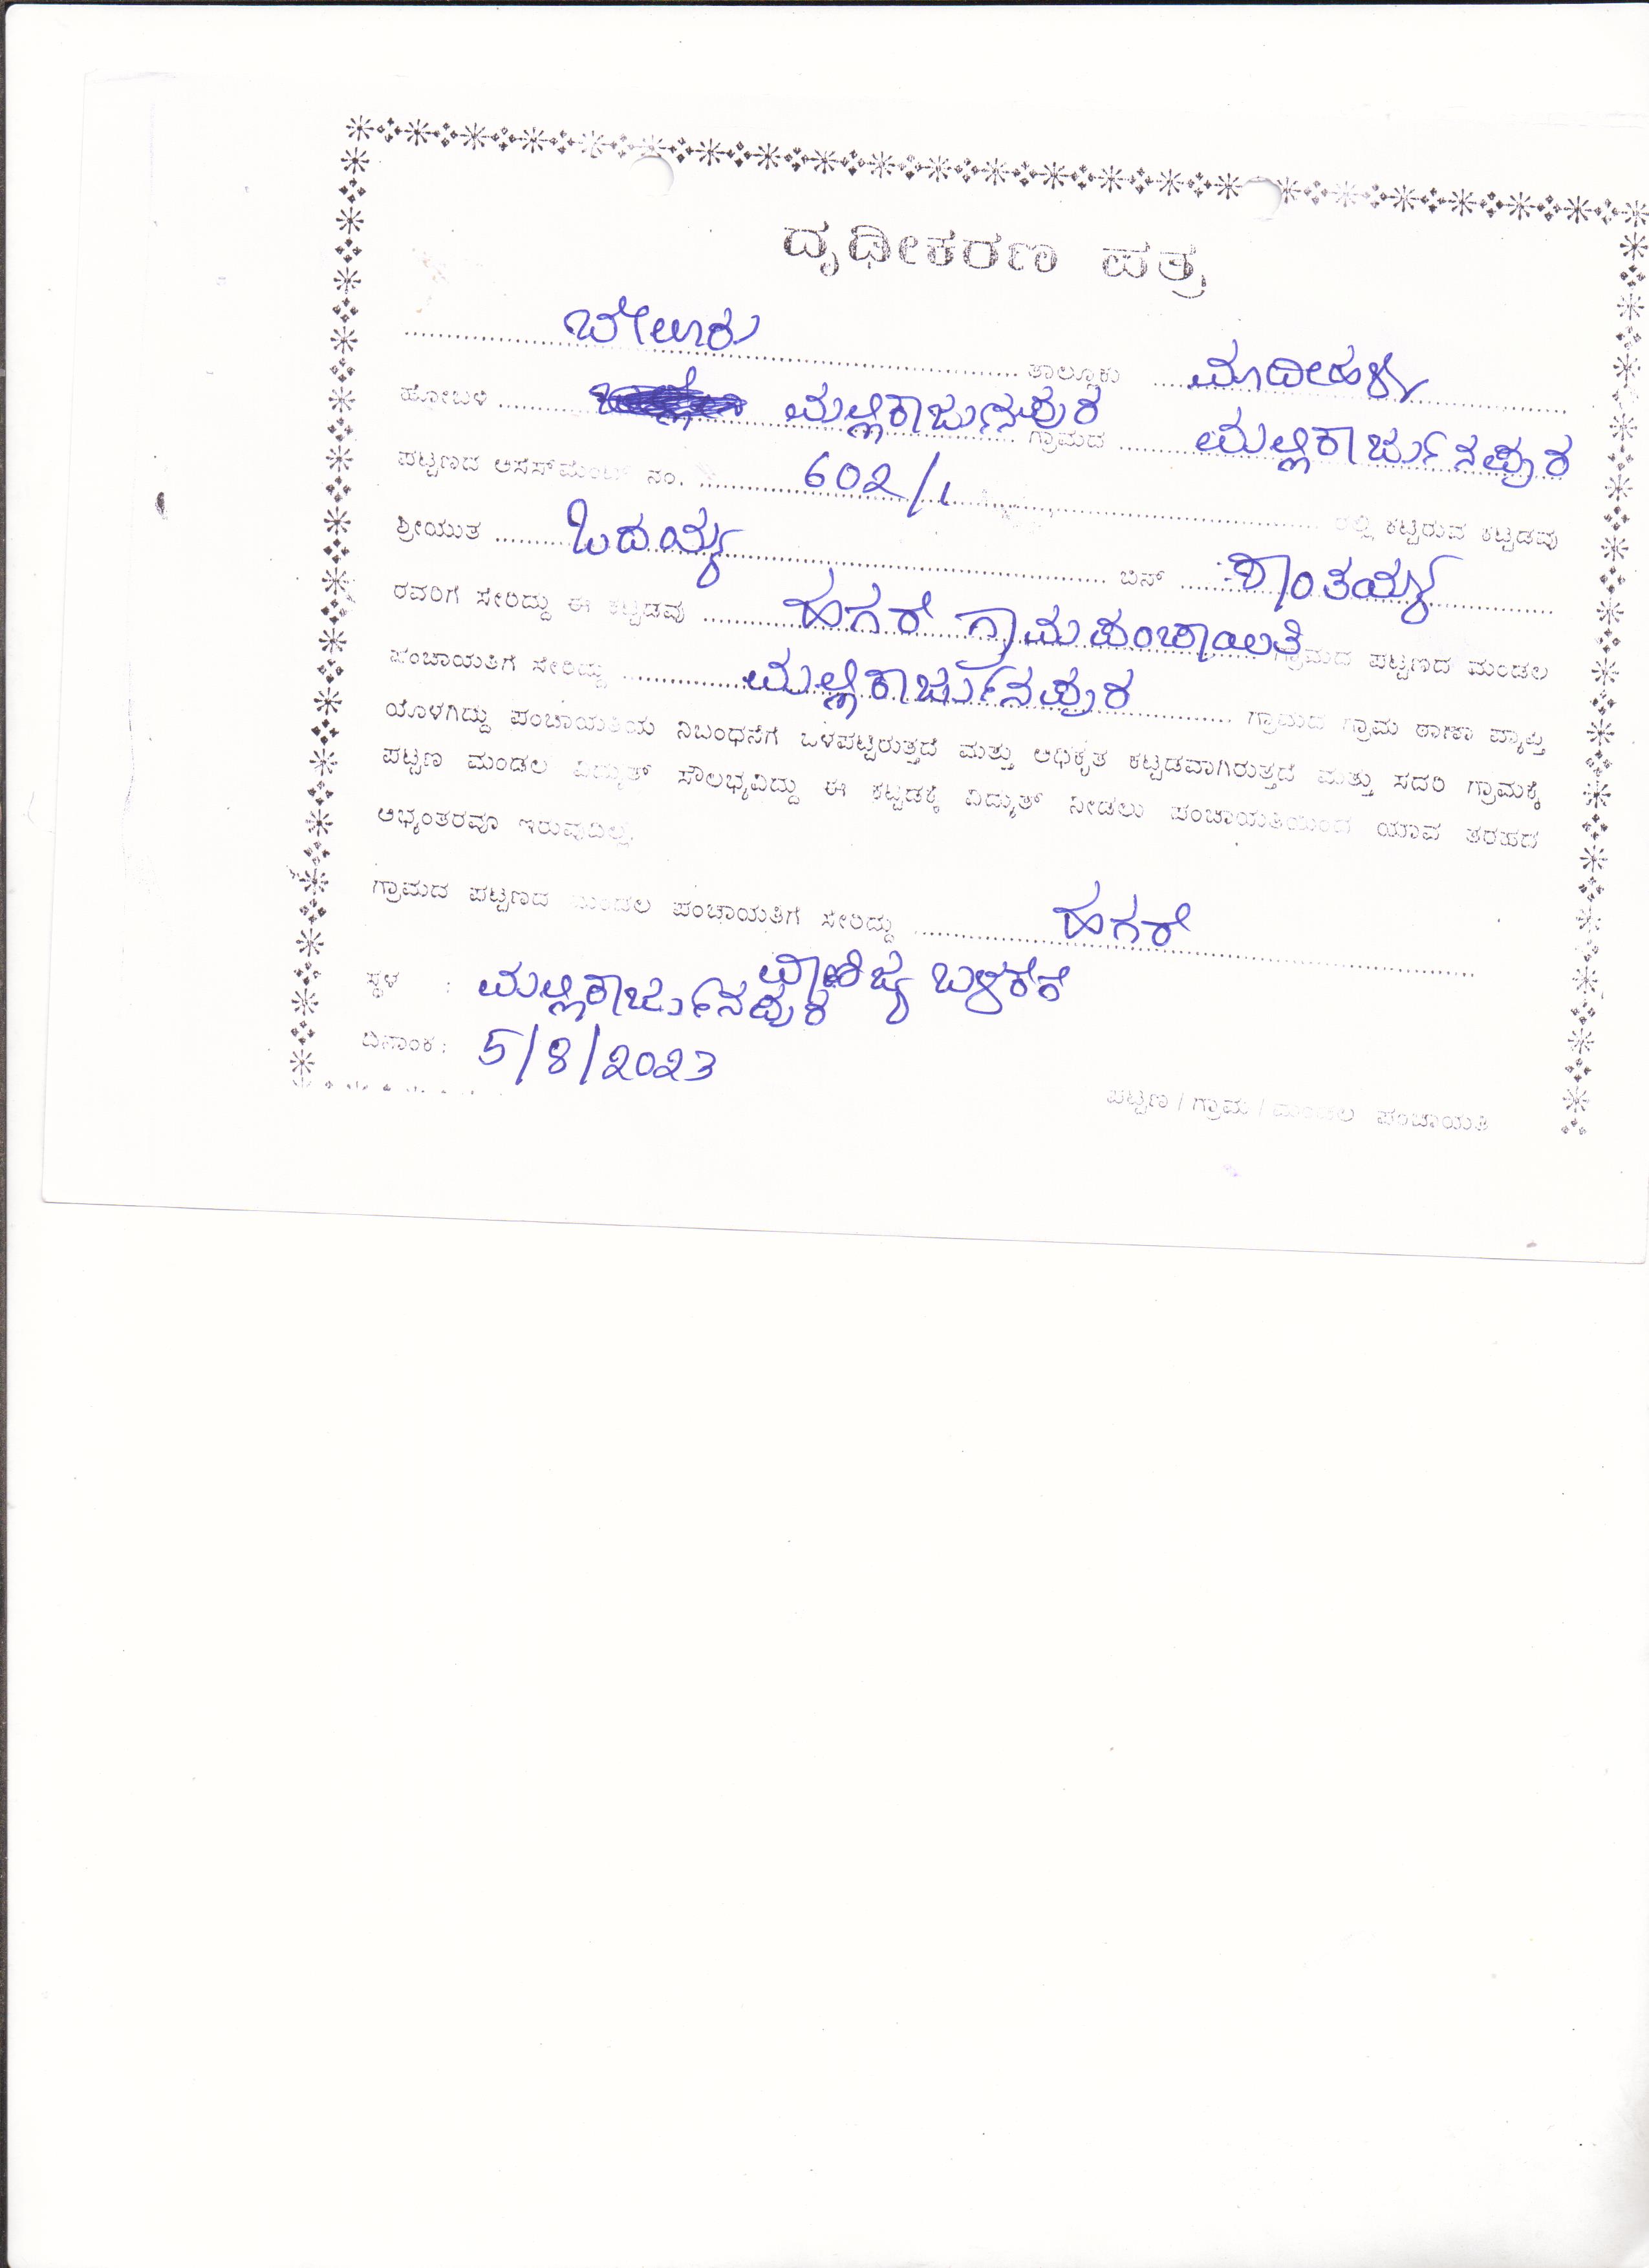 ದೃಢೀಕರಣ ಪತ್ರ
.......... ಬೇಲೂರು .......... ತಾಲ್ಲೂಕು .......... ಮಾದೀಹಳ್ಳಿ ..........
ಹೋಬಳಿ .......... ಮಲ್ಲಿಕಾರ್ಜುನಪುರ .......... ಗ್ರಾಮದ .......... ಮಲ್ಲಿಕಾರ್ಜುನಪುರ
ಪಟ್ಟಣದ ಅಸೆಸ್‌ಮೆಂಟ್ ನಂ. .......... 602/1 .......... ರಲ್ಲಿ ಕಟ್ಟಿರುವ ಕಟ್ಟಡವು
ಶ್ರೀಯುತ .......... ಓದಯ್ಯ .......... ಬಿನ್ .......... ಶಾಂತಯ್ಯ ..........
ರವರಿಗೆ ಸೇರಿದ್ದು ಈ ಕಟ್ಟಡವು .......... ಹಗರೆ ಗ್ರಾಮ ಪಂಚಾಯಿತಿ .......... ಗ್ರಾಮದ ಪಟ್ಟಣದ ಮಂಡಲ
ಪಂಚಾಯತಿಗೆ ಸೇರಿದ್ದು .......... ಮಲ್ಲಿಕಾರ್ಜುನಪುರ .......... ಗ್ರಾಮದ ಗ್ರಾಮ ಠಾಣಾ ವ್ಯಾಪ್ತಿ
ಯೊಳಗಿದ್ದು ಪಂಚಾಯತಿಯ ನಿಬಂಧನೆಗೆ ಒಳಪಟ್ಟಿರುತ್ತದೆ ಮತ್ತು ಅಧಿಕೃತ ಕಟ್ಟಡವಾಗಿರುತ್ತದೆ ಮತ್ತು ಸದರಿ ಗ್ರಾಮಕ್ಕೆ
ಪಟ್ಟಣ ಮಂಡಲ ವಿದ್ಯುತ್ ಸೌಲಭ್ಯವಿದ್ದು ಈ ಕಟ್ಟಡಕ್ಕೆ ವಿದ್ಯುತ್ ನೀಡಲು ಪಂಚಾಯತಿಯಿಂದ ಯಾವ ತರಹದ
ಅಭ್ಯಂತರವೂ ಇರುವುದಿಲ್ಲ.
ಗ್ರಾಮದ ಪಟ್ಟಣದ ಮಂಡಲ ಪಂಚಾಯತಿಗೆ ಸೇರಿದ್ದು .......... ಹಗರೆ ..........
ವಾಣಿಜ್ಯ ಬಳಕೆಗೆ
ಸ್ಥಳ : ಮಲ್ಲಿಕಾರ್ಜುನಪುರ
ದಿನಾಂಕ : 5/8/2023
ಪಟ್ಟಣ / ಗ್ರಾಮ / ಮಂಡಲ ಪಂಚಾಯತಿ